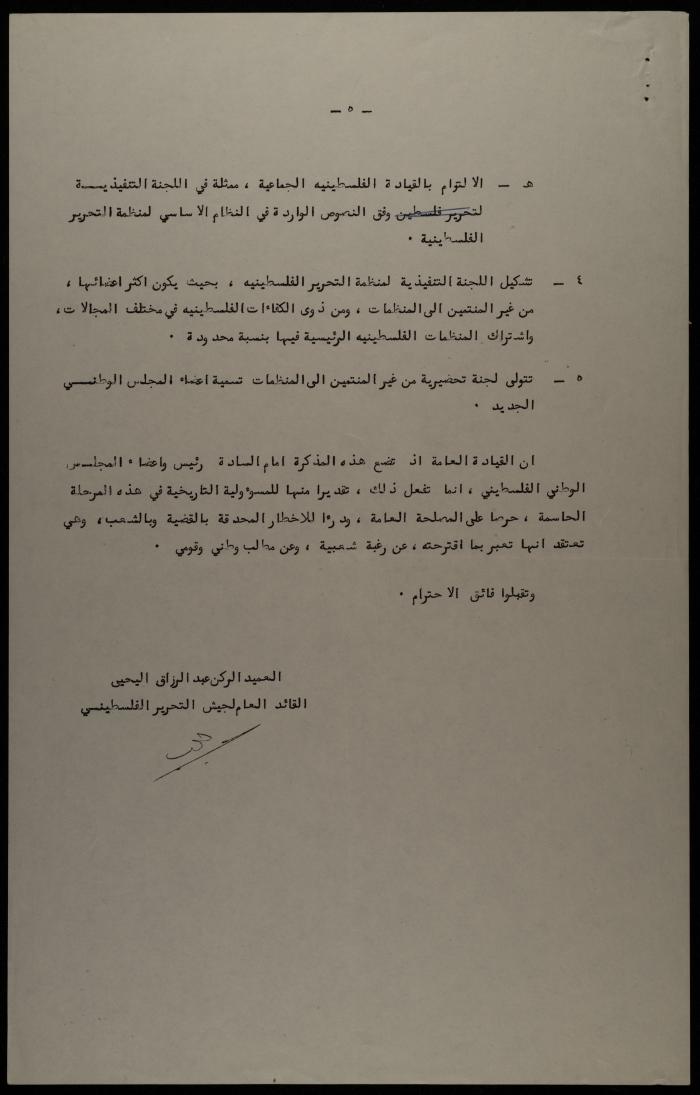 — ٥ —
هـ — الالتوام بالقيادة الفلسطينيه الجماعية ، ممثلة في اللجنة التنفيذيـــة
لتحرير فلسطين وفق النصوص الواردة في النظام الاساسي لمنظمة التحرير
الفلسطينية .
٤ — تشكيل اللجنة التنفيذية لمنظمة التحرير الفلسطينيه ، بحيث يكون اكثر اعضائها ،
من غير المنتمين الى المنظمات ، ومن ذوى الكفاءات الفلسطينيه في مختلف المجالات ،
واشتراك المنظمات الفلسطينيه الرئيسية فيها بنسبة محدودة .
٥ — تتولى لجنة تحضيرية من غير المنتمين الى المنظمات تسمية اعضاء المجلس الوطنـــي
الجديد .
ان القيادة العامة اذ تضع هذه المذكرة امام السادة رئيس واعضاء المجلــس
الوطني الفلسطيني ، انما تفعل ذلك ، تقديرا منها للمسوءولية التاريخية في هذه المرحلة
الحاسمة ، حرصا على المصلحة العامة ، ودرءا للاخطار المحدقة بالقضية وبالشعب ، وهي
تعتقد انها تعبر بما اقترحته ، عن رغبة شعبية ، وعن مطالب وطني وقومي .
وتقبلوا فائق الاحترام .
العميد الركن عبد الرزاق اليحيى
القائد العام لجيش التحرير الفلسطينــي